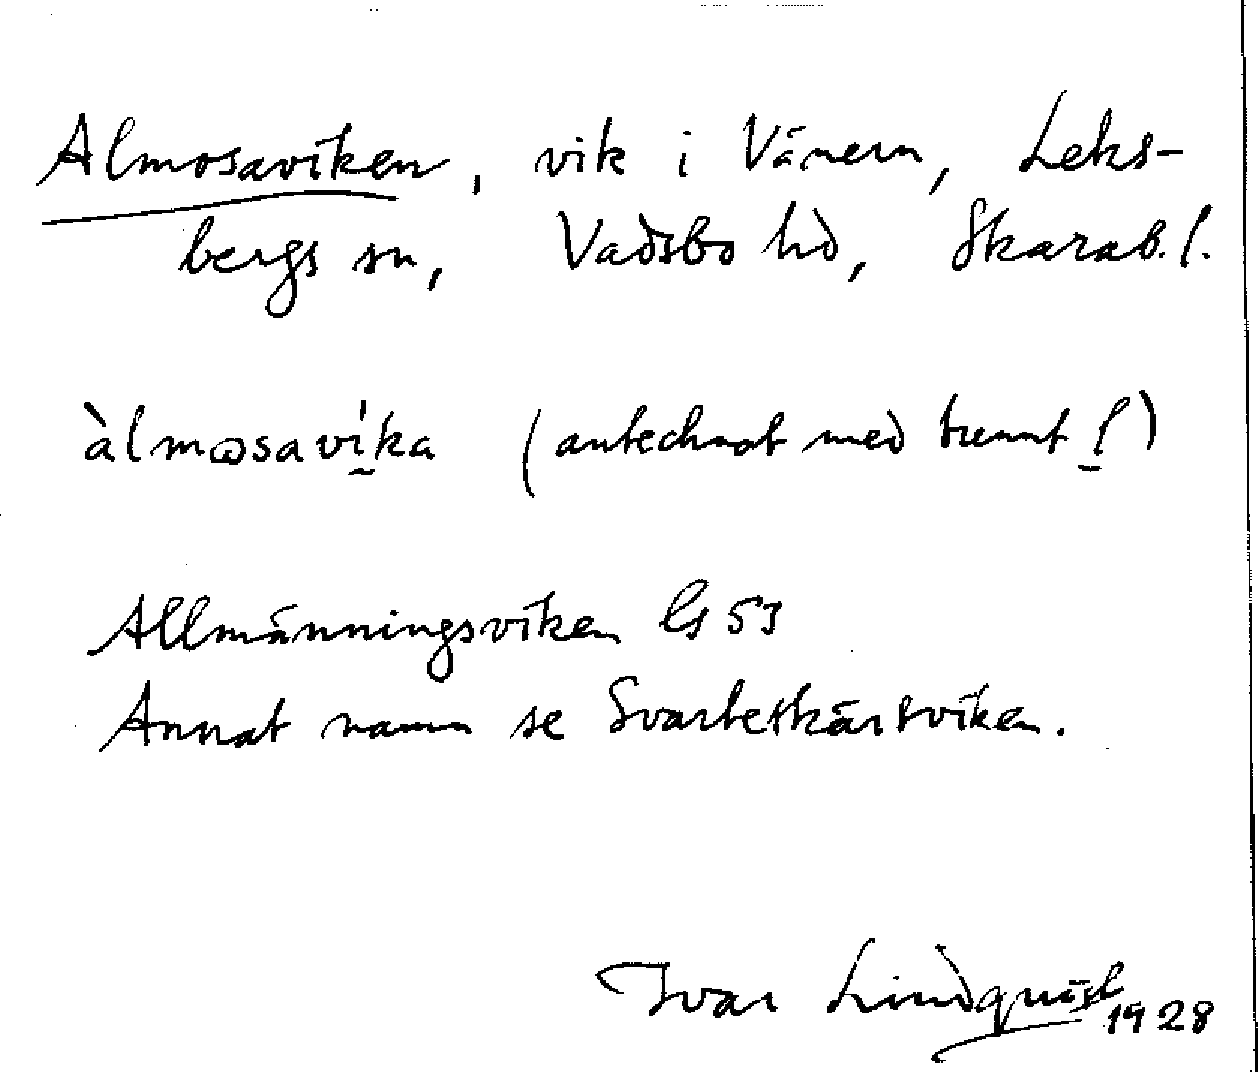 Almosaviken, vik i Vänern, Leks-
bergs sn, Vadsbo hd, Skarab. l.
àlmosavi̠ka (antecknat med tunnt l̠)
Allmänningsviken G S3
Annat namn se Svarteskärsviken.
Ivar Lindquist 1928